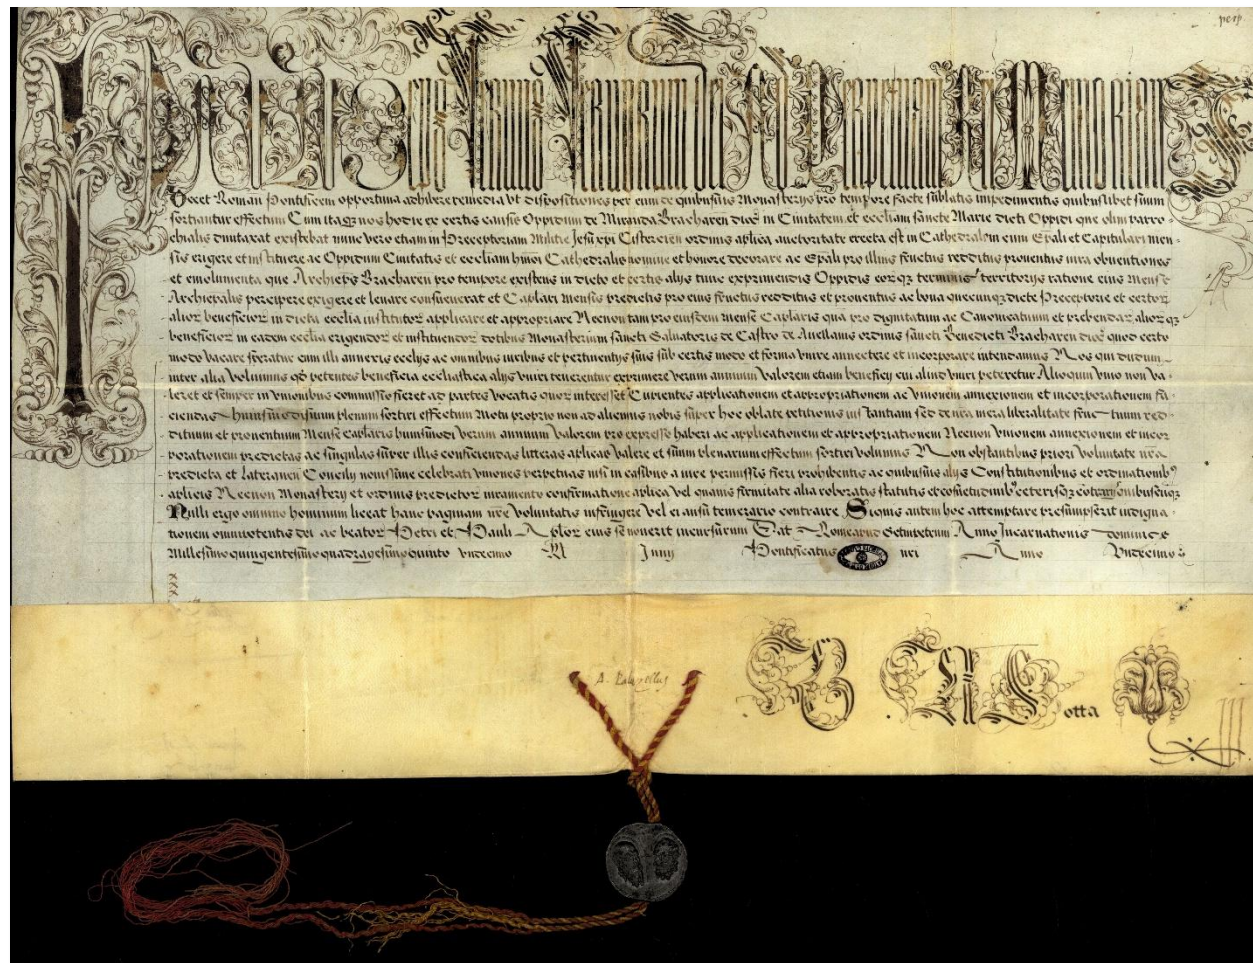 Paulus eps servus servorum dei Ad Perpetuam Rei Memoriam
Decet Roman Pontificem opportuna adhibere remedia vt dispositiones per eum de quibusuis Monasterijs pro tempore facte sublatis impedimentis quibuslibet suum
sortiantur effectum Cum itaq nos hodie ex certis causis Oppidum de Miranda Bracharen dioc in Ciuitatem et eccliam sancte Marie dicti Oppidi que olim parro-
chialis dumtaxat existebat nunc vero etiam in Preceptoriam Militie Jesu xpi Cistercien ordinis aplica auctoritate erecta est in Cathedralem cum Epali et Capitulari men-
sis erigere et instituere ac Oppidum Ciuitatis et eccliam hmoi Cathedralis nomine et honore decorare ac Epali pro illius fructus redditus prouentus iura obuentiones
et emolumenta que Archieps Bracharen pro tempore existens in dicto et certis alijs tunc exprimendis Oppidis eorq terminis territorijs ratione eius Mense
Archiepalis percipere exigere et leuare consueuerat et Caplari Mensis predictis pro eius fructus redditus et prouentus ac bona quecunq dicte Preceptorie et certor
alior beneficior in dicta ecclia institutor applicare et appropriare Necnon tam pro eiusdem Mense Caplaris qua pro dignitatum ac Canonicatuum et prebendar alior q
beneficior in eadem ecclia erigendor et instituendor dotibus Monasterium sancti Saluatoris de Castro de Auellanis ordinis sancti Benedicti Bracharen dioc quod certo
modo vacare speratur cum illi annexis eccliis ac omnibus iuribus et pertinentijs suis sub certis modo et forma vnire annectere et incorporare intendamus Nos qui dudum
inter alia voluimus qd petentes beneficia ecclesiastica alijs vniri tenerentur exprimere verum annuum valorem etiam beneficij cui aliud vniri peteretur Alioquin vnio non va-
leret et semper in vnionibus commissio fieret ad partes vocatis quor interesset Cupientes applicationem et appropriationem ac vnionem annexionem et incorporationem fa-
ciendas huiusmodi suum plenum sortiri effectum Motu proprio non ad alicuius nobis super hoc oblate petitionis instantiam sed de nra mera liberalitate fructuum red-
dituum et prouentuum Mense Caplaris huiusmodi verum annuum valorem pro expresso haberi ac applicationem et appropriationem Necnon vnionem annexionem et incor-
porationem predictas ac singulas super illis conficiendas litteras aplicas valere et suum plenarium effectum sortiri volumus Non obstantibus priori voluntate nra
predicta et Lateranen Concilij nouissime celebrati vniones perpetuas nisi in casibus a iure permissis fieri prohibentis ac quibusuis alijs Constitutionibus et ordinationib
aplicis Necnon Monasterij et ordinis predictor iuramento confirmatione aplica vel quauis firmitate alia roboratis statutis et consuetudinib ceterisq contrarijs quibuscunq
Nulli ergo omnino hominum liceat hanc paginam nre voluntatis infringere vel ei ausu temerario contraire Siquis autem hoc attemptare presumpserit indigna-
tionem omnipotentis dei ac beator Petri et Pauli Aplor eius se nouerit incursurum Dat Rome apud Sctum petrum Anno Incarnationis dominice
Millesimo quingentesimo quadragesimo quinto vndecimo kl Junij Pontificatus nri Anno Vndecimo
xxx
otta